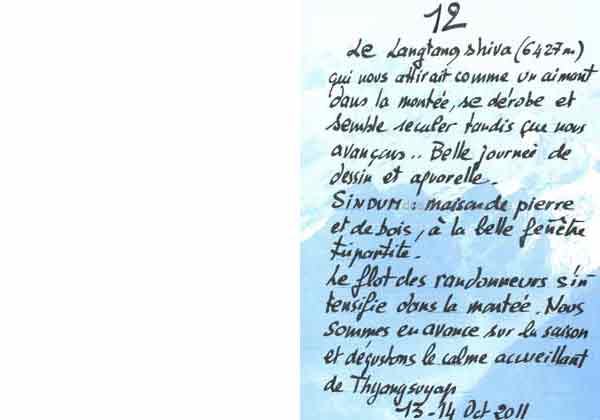 12
Le Langtang shiva (6427m)
qui nous attirait comme un aimant
dans la montée, se dérobe et
semble reculer tandis que nous
avançons.. Belle journée de
dessin et aquarelle.
SINDUM : maison de pierre
et de bois, à la belle fenêtre
tripartite.
Le flot des randonneurs s'in-
tensifie dans la montée. Nous
sommes en avance sur la saison
et dégustons le calme accueillant
de Thyangsuyap
13-14 Oct 2011